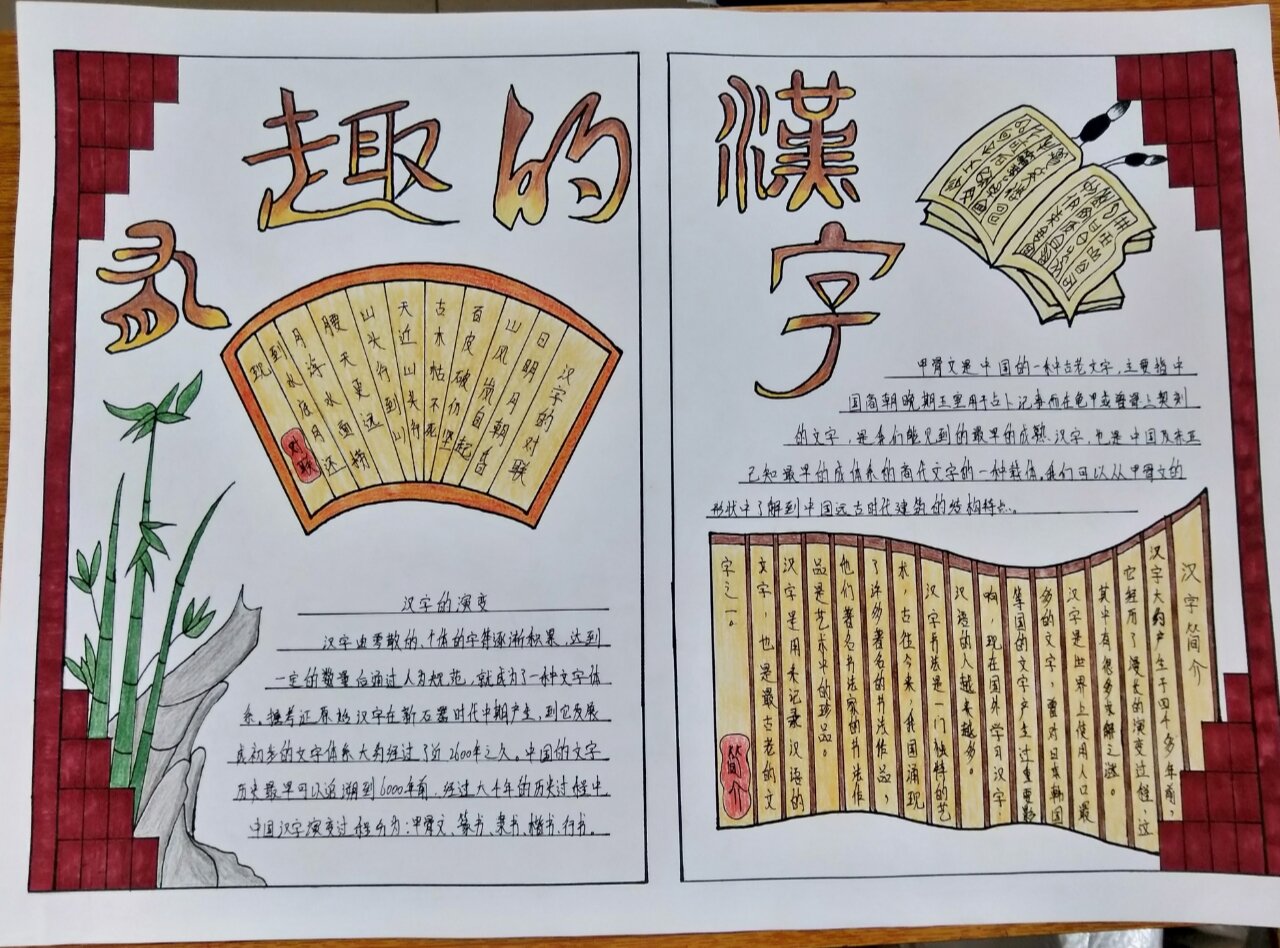 有趣的
漢字
汉字的对联
日明月朝昏
山风岚自起
百皮破仍坚
古木枯不死
天近山头行
到山
山头行到
腰天更远
月浮水面捞
水底月还
到
现
对联
汉字的演变
汉字由零散的、个体的字符逐渐积累,达到
一定的数量后通过人为规范,就成为了一种文字体
系。据考证原始汉字在新石器时代中期产生,到它发展
成初步的文字体系大约经过了近2600年之久。中国的文字
历史最早可以追溯到6000年前,经过六千年的历史过程中
中国汉字演变过程分为:甲骨文、篆书、隶书、楷书、行书。
甲骨文是中国的一种古老文字,主要指中
国商朝晚期王室用于占卜记事而在龟甲或兽骨上契刻
的文字,是我们能见到的最早的成熟汉字,也是中国及东亚
已知最早的成体系的商代文字的一种载体。我们可以从甲骨文的
形状中了解到中国远古时代建筑的结构特点。
汉字简介
汉字大约产生于四千多年前,
它经历了漫长的演变过程,这
其中有很多未解之谜。
汉字是世界上使用人口最
多的文字,曾对日本韩国
等国的文字产生过重要影
响,现在国外学习汉字
汉语的人越来越多。
汉字书法是一门独特的艺
术,古往今来,我国涌现
了许多著名的书法作品,
他们著名书法家的书法作
品是艺术中的珍品。
汉字是用来记录汉语的
文字,也是最古老的文
字之一。
简介